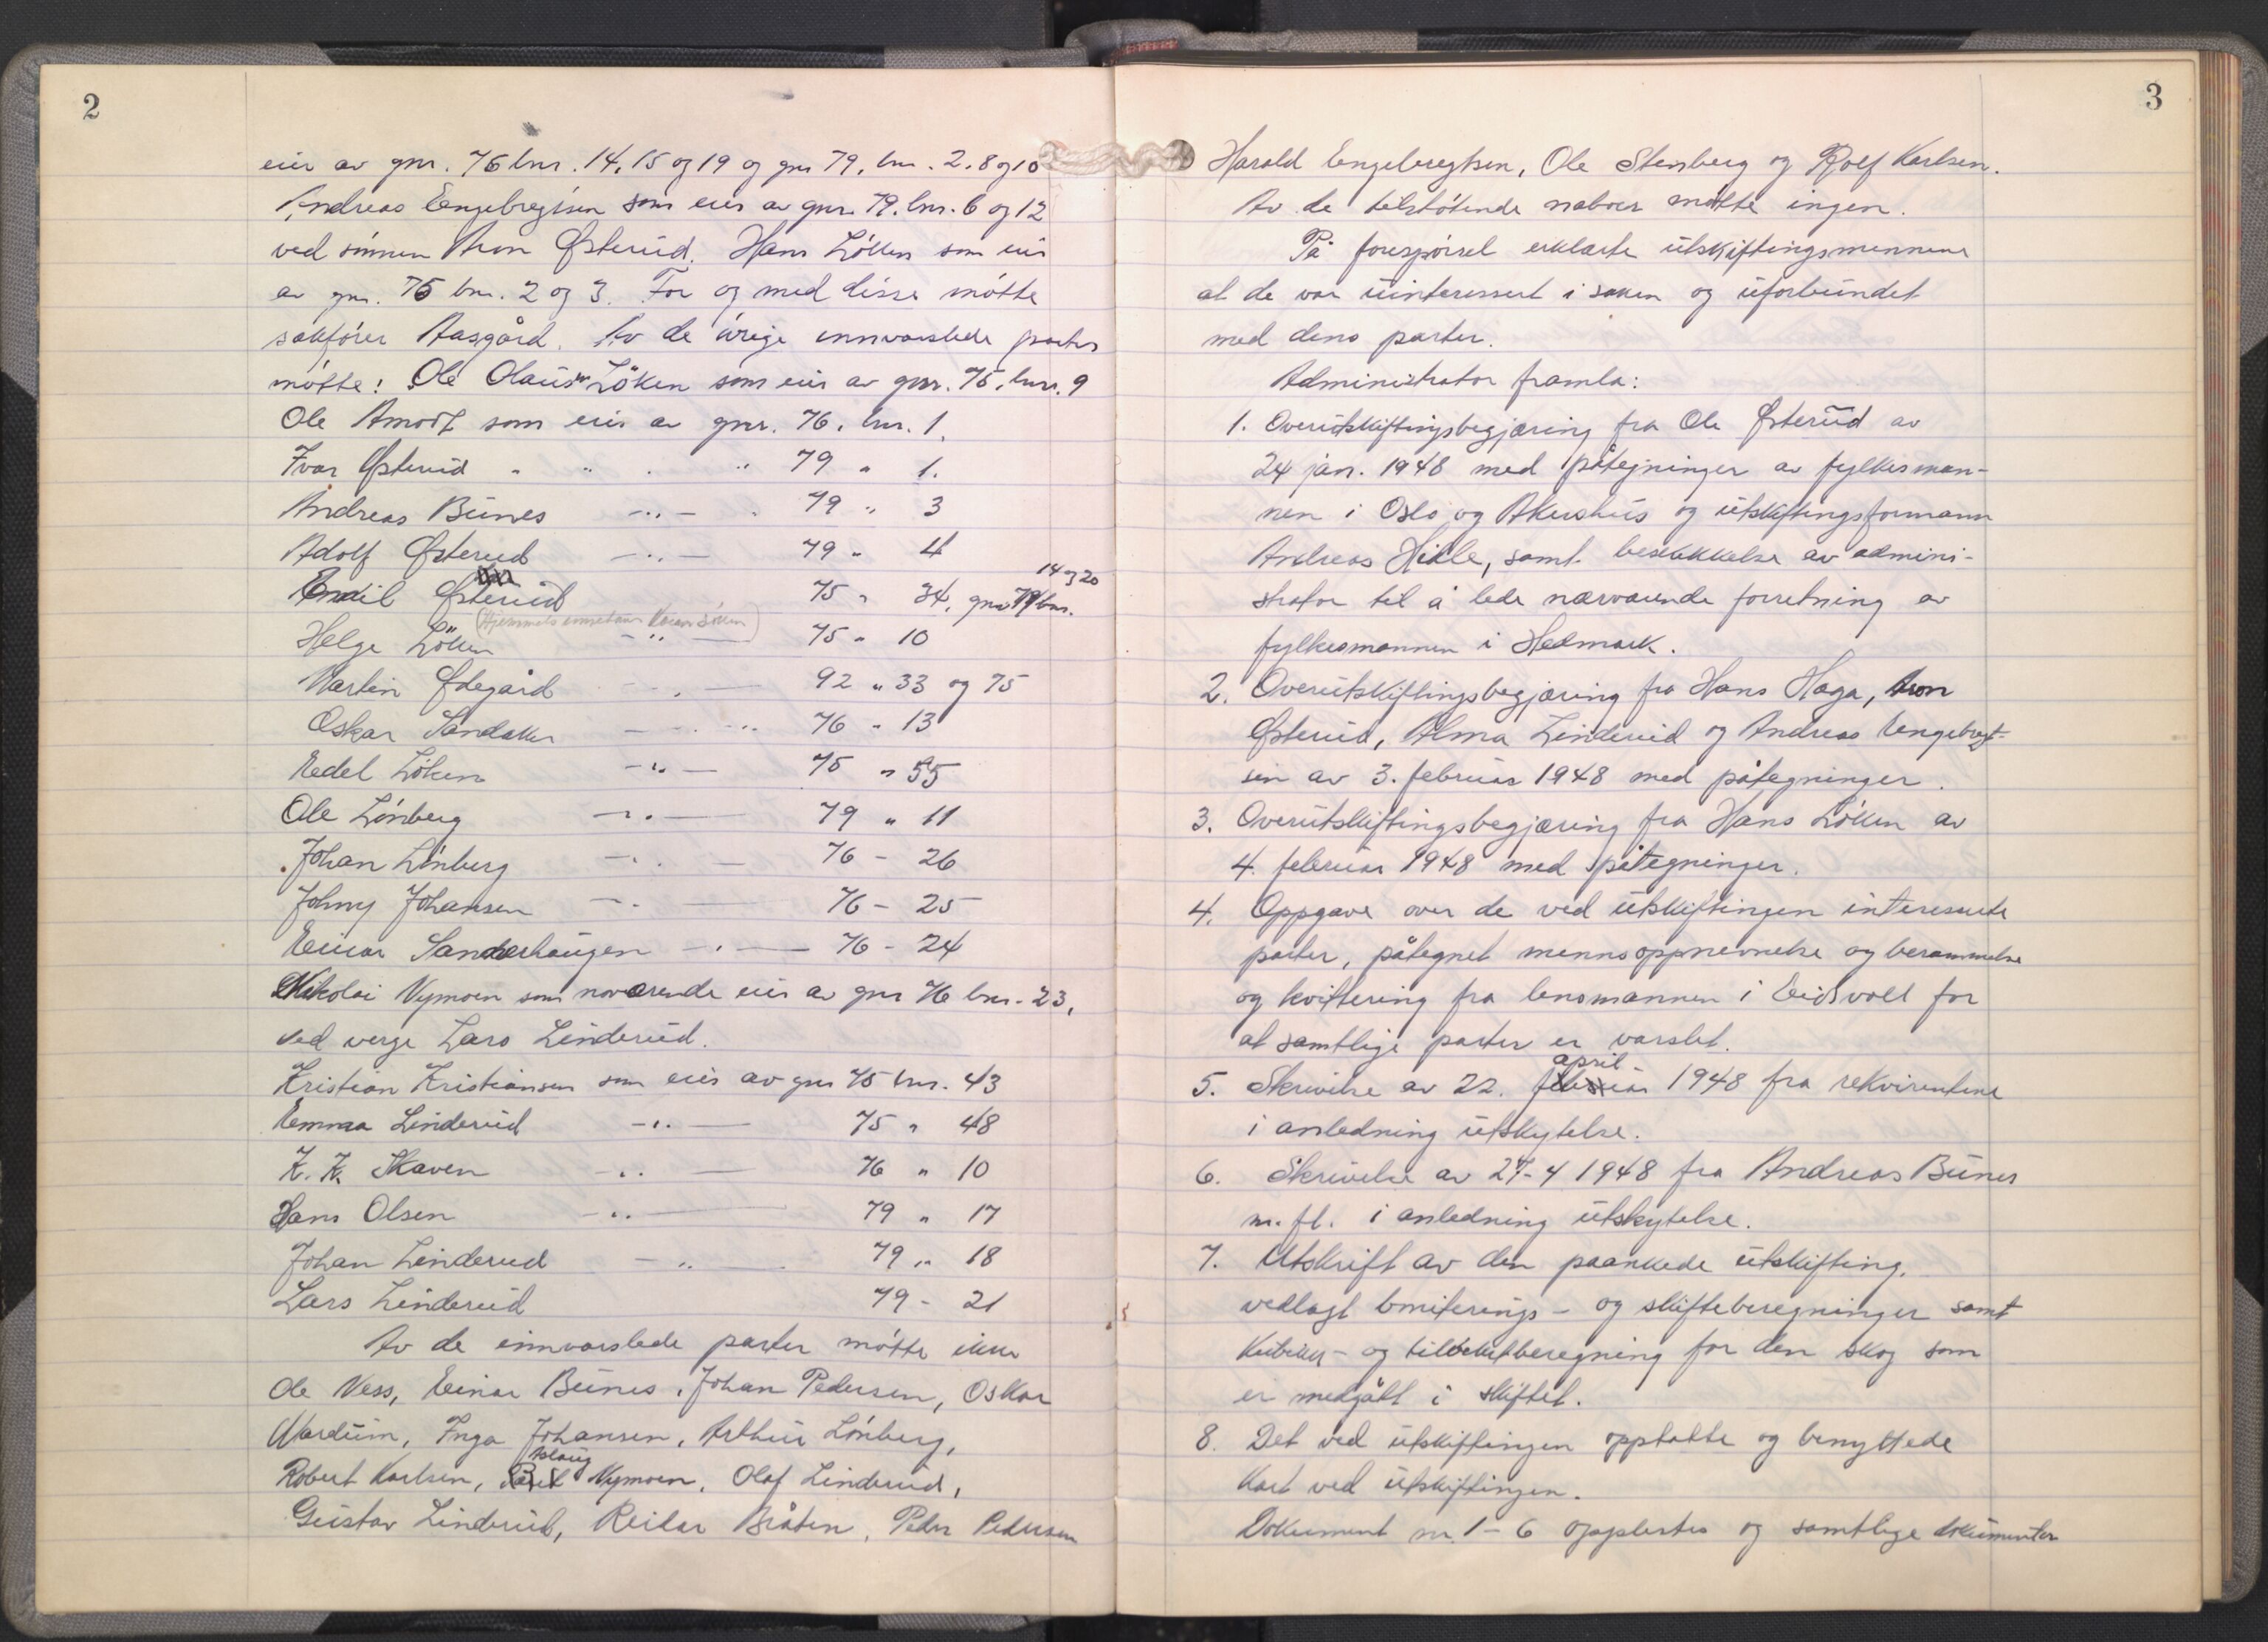 2
eier av gnr. 76 bnr. 14, 15 og 19 og gnr 79, bnr. 2. 8 og 10
Andreas Engebregtsen som eier av gnr. 79. bnr. 6 og 12
ved sønnen Aron Østerud. Hans Löken som eier
av gnr. 75 bnr. 2 og 3. For og med disse møtte
sakfører Aasgård. Av de øvrige innvarslede parter
møtte: Ole Olausen Löken som eier av gnr. 75, bnr. 9
Ole Amodt som eier av gnr. 76. bnr. 1.
Ivar Østerud " " " " 79 " 1.
Andreas Bünes -"- " 79 " 3
Adolf Østerud -"- 79 " 4
14 og 20
Emil Østerud 75 " 34, gnr 79 bnr.
(Hjemmelsinnehaver Løken)
Helge Löken -"- 75 " 10
Martin Ødegård -"- 92 " 33 og 75
Oskar Sandaker -"- 76 " 13
Edel Löken -"- 75 " 55
Ole Lönberg -"- 79 " 11
Johan Lönberg -"- 76 - 26
Johny Johansen -"- 76 - 25
Einar Sanderhaugen -"- 76 - 24
Nikolai Nymoen som noværende eier av gnr 76 bnr. 23,
ved verge Lars Linderud.
Kristian Kristiansen som eier av gnr 75 bnr. 43
Emma Linderud -"- 75 " 48
K. K. Skaven -"- 76 " 10
Hans Olsen -"- 79 " 17
Johan Linderud -"- 79 " 18
Lars Linderud 79 - 21
Av de innvarslede parter møtte ikke
Ole Ness, Einar Bünes, Johan Pedersen, Oskar
Mardum, Inga Johansen, Arthur Lönberg,
Aslaug
Robert Karlsen, Nymoen, Olaf Linderud,
Gustav Linderud, Reidar Bråten, Peder Pedersen
3
Harald Engebregtsen, Ole Stensberg og Rolf Karlsen.
Av de tilstøtende naboer møtte ingen.
På forespørsel erklærte utskiftingsmennene
at de var uinteressert i saken og uforbundet
med dens parter.
Administrator framla:
1. Overutskiftingsbegjæring fra Ole Østerud av
24 jan. 1948 med påtegninger av fylkesman-
nen i Oslo og Akershus og utskiftingsformann
Andreas Hille, samt beskikkelse av admini-
strator til å lede nærværende forretning av
fylkesmannen i Hedmark.
2. Overutskiftingsbegjæring fra Hans Haga, Aron
Østerud, Alma Linderud og Andreas Engebregt-
sen av 3. februar 1948 med påtegninger.
3. Overutskiftingsbegjæring fra Hans Löken av
4. februar 1948 med påtegninger.
4. Oppgave over de ved utskiftingen interesserte
parter, påtegnet mannsoppnevnelse og berammelse
og kvittering fra lensmannen i Eidsvoll for
at samtlige parter er varslet.
april
5. Skrivelse av 22. februar 1948 fra rekvirentene
i anledning utskytelse.
6. Skrivelse av 27-4 1948 fra Andreas Bünes
m. fl. i anledning utskytelse.
7. Utskrift av den paankede utskifting,
vedlagt boniterings- og skifteberegninger samt
Kubikk- og tilvekstberegning for den skog som
er medgått i skiftet.
8. Det ved utskiftingen opptatte og benyttede
kart ved utskiftingen.
Dokument nr. 1 - 6 opplestes og samtlige dokumenter